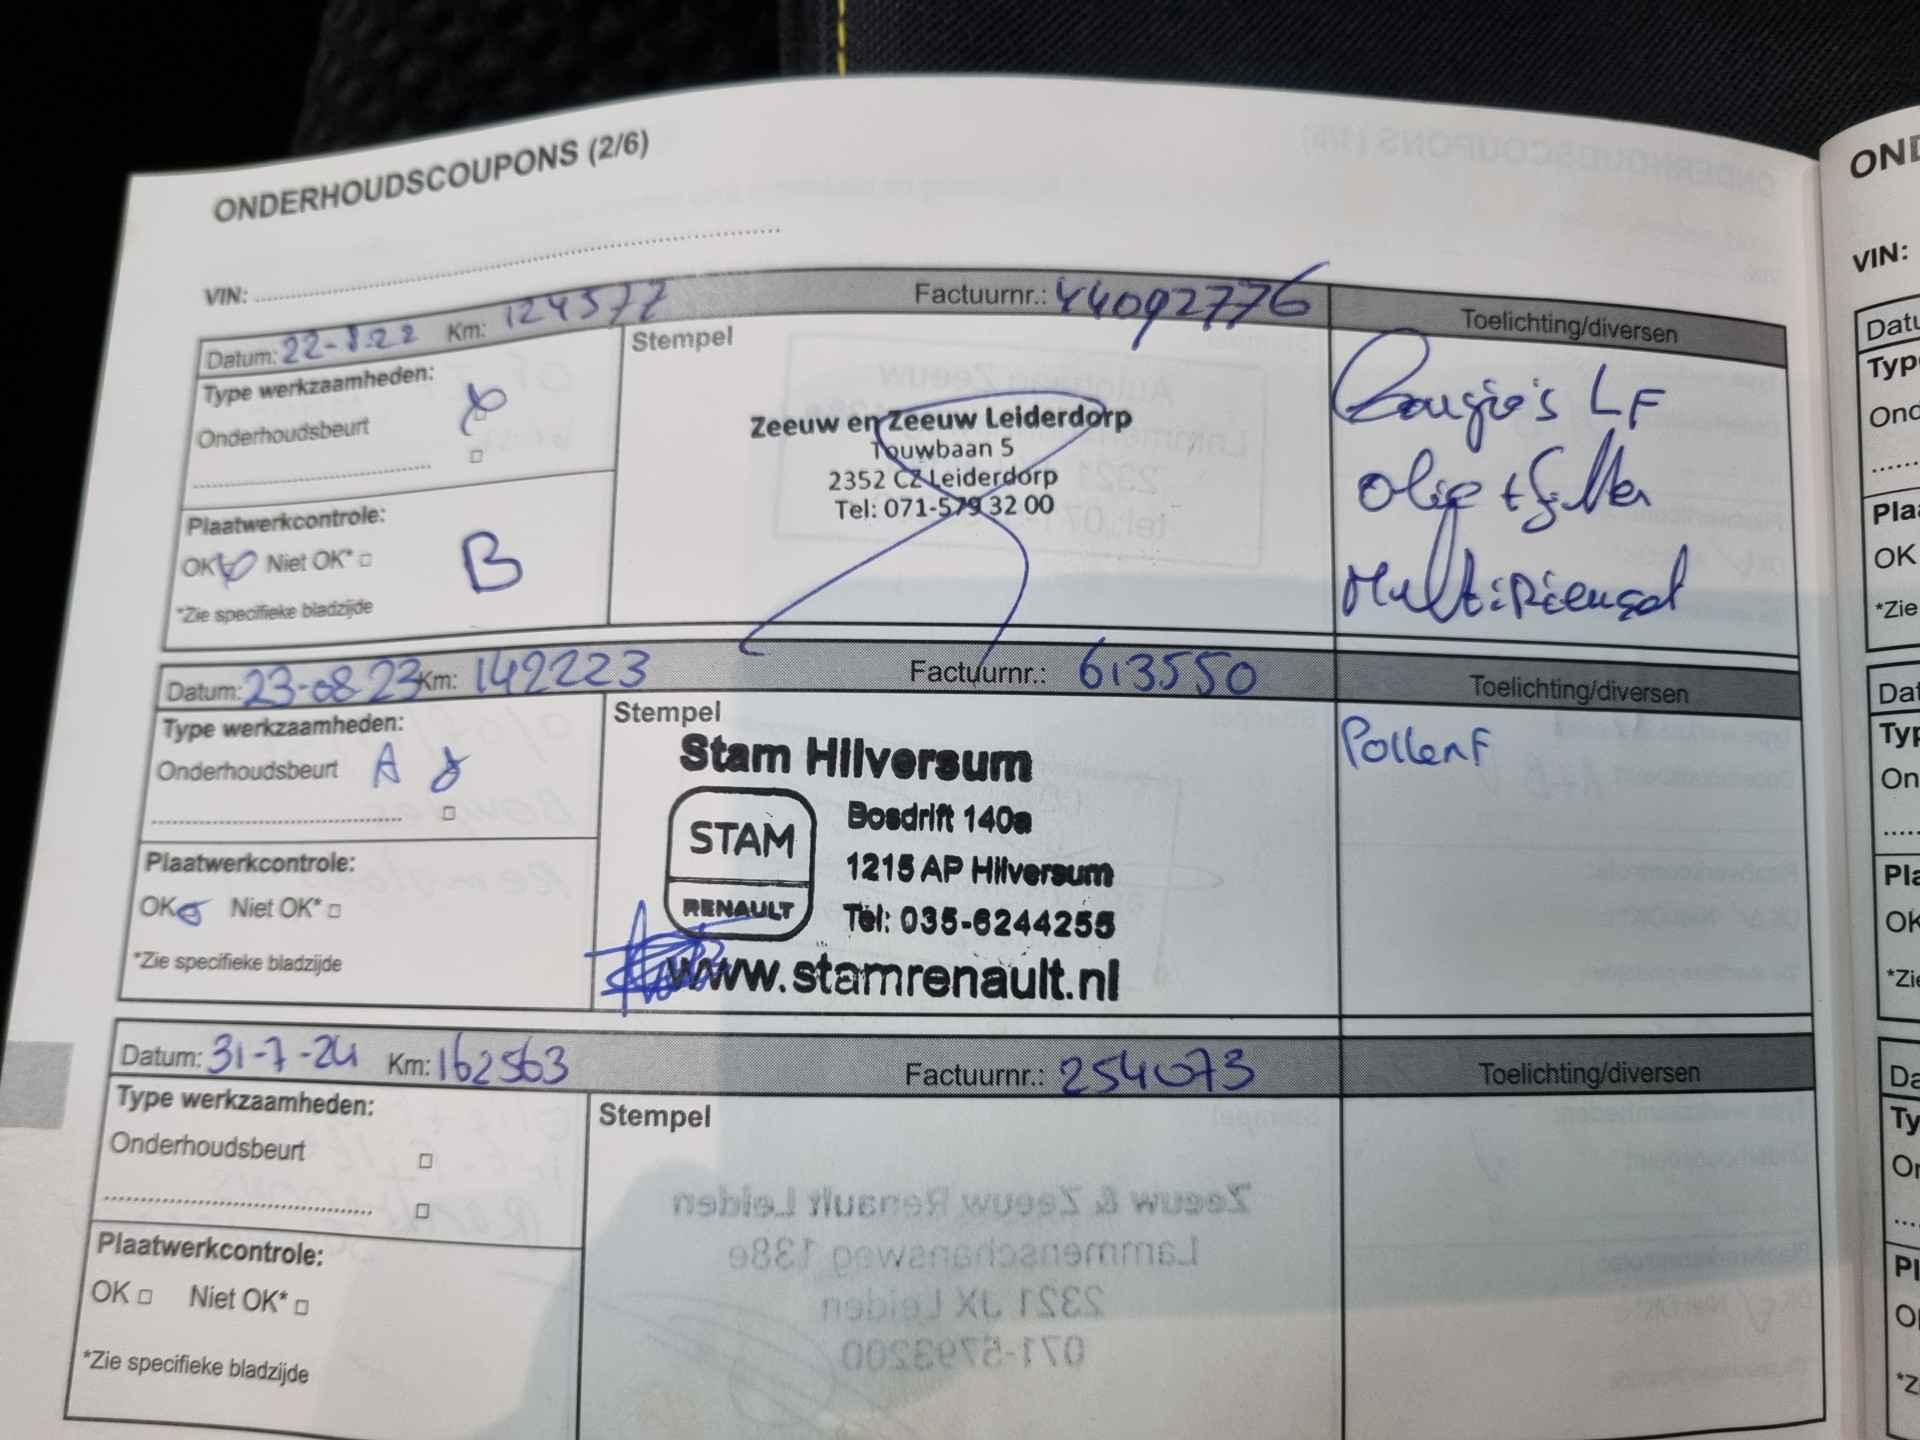 ONDERHOUDSCOUPONS (2/6)
VIN:
Datum: 22-8-22 Km: 124577 Factuurnr.: 44092776 Toelichting/diversen
Type werkzaamheden:
Onderhoudsbeurt
Plaatwerkcontrole:
OK Niet OK* B
*Zie specifieke bladzijde
Stempel
Zeeuw en Zeeuw Leiderdorp
Touwbaan 5
2352 CZ Leiderdorp
Tel: 071-579 32 00
Bougie's LF
Olie + filter
Multiriem
Datum: 23-08-23 Km: 142223 Factuurnr.: 613550 Toelichting/diversen
Type werkzaamheden:
Onderhoudsbeurt A
Plaatwerkcontrole:
OK Niet OK*
*Zie specifieke bladzijde
Stempel
Stam Hilversum
STAM
RENAULT
Bosdrift 140a
1215 AP Hilversum
Tel: 035-6244255
www.stamrenault.nl
PollenF
Datum: 31-7-24 Km: 162563 Factuurnr.: 254073 Toelichting/diversen
Type werkzaamheden:
Onderhoudsbeurt
Plaatwerkcontrole:
OK Niet OK*
*Zie specifieke bladzijde
Stempel
VIN:
OK
*Zie
OK